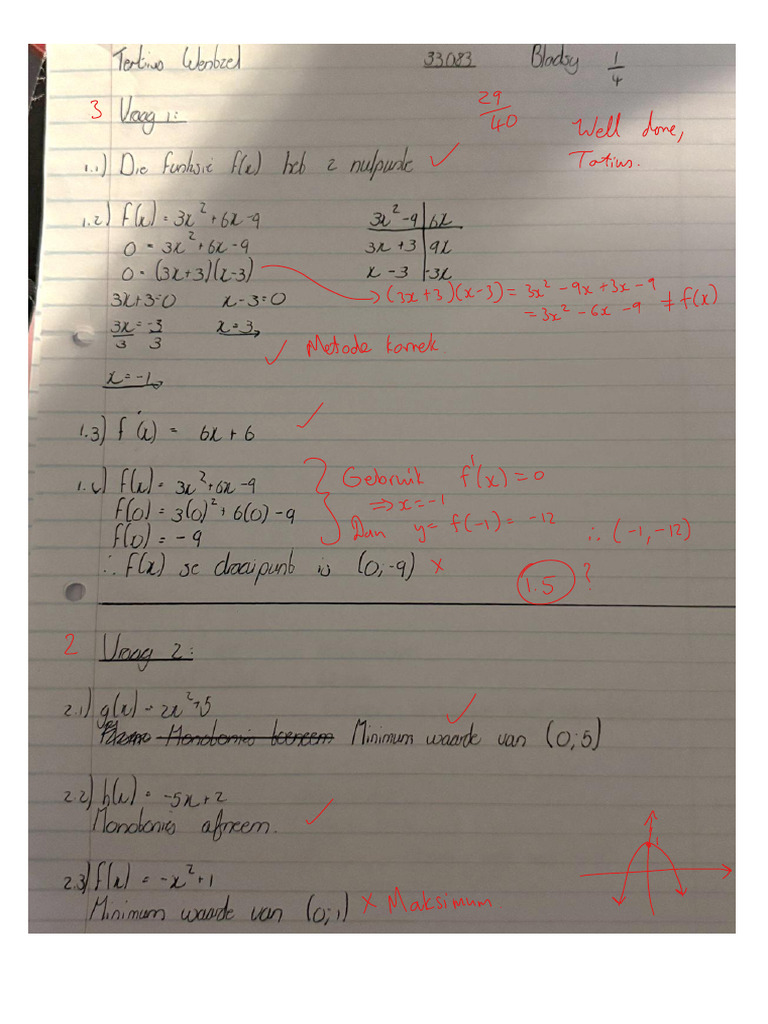 Tertius Wentzel 33083 Bladsy 1/4
3 Vraag 1: 29/40 Well done,
Tertius.
1.1) Die funksie f(x) heb 2 nulpunte ✓
1.2) f(x) = 3x² + 6x - 9 3x² - 9 | 6x
0 = 3x² + 6x - 9 3x + 3 | 9x
0 = (3x+3)(x-3) x - 3 | -3x
→ (3x+3)(x-3) = 3x² - 9x + 3x - 9
= 3x² - 6x - 9 ≠ f(x)
3x+3=0 x-3=0
3x/3 = -3/3 x=3
✓ Metode korrek.
x = -1
1.3) f'(x) = 6x + 6 ✓
1.4) f(x) = 3x² + 6x - 9 Gebruik f'(x) = 0
f(0) = 3(0)² + 6(0) - 9 ⇒ x = -1
f(0) = -9 Dan y = f(-1) = -12 ∴ (-1, -12)
∴ f(x) se draaipunt is (0;-9) x
1.5 ?
2 Vraag 2:
2.1) g(x) = 2x² + 5 ✓
Monotonies toeneem Minimum waarde van (0;5)
2.2) h(x) = -5x + 2
Monotonies afneem. ✓
2.3) f(x) = -x² + 1 1
Minimum waarde van (0;1) x Maksimum